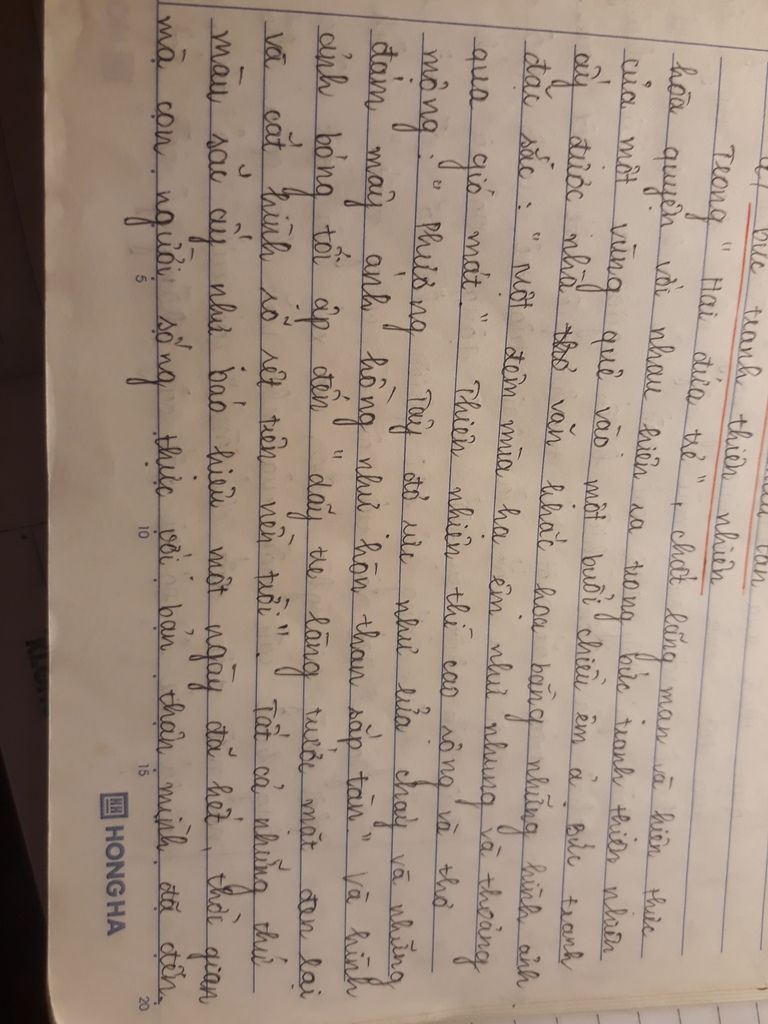 bức tranh thiên nhiên
Trong " Hai đứa trẻ", chất lãng mạn và hiện thực
hòa quyện với nhau hiện ra trong bức tranh thiên nhiên
của một vùng quê vào một buổi chiều êm ả. Bức tranh
ấy được nhà thơ văn khắc họa bằng những hình ảnh
đặc sắc: " Một đêm mùa hạ êm như nhung và thoảng
qua gió mát". Thiên nhiên thì cao rộng và thơ
mộng: " Phương Tây đỏ rực như lửa cháy và những
đám mây ánh hồng như hòn than sắp tàn" và hình
ảnh bóng tối ập đến " dãy tre làng trước mặt đen lại
và cắt hình rõ rệt trên nền trời". Tất cả những thứ
màu sắc ấy như báo hiệu một ngày đã hết, thời gian
mà con người sống thực với bản thân mình đã đến.
5
10
15
20
HONG HA